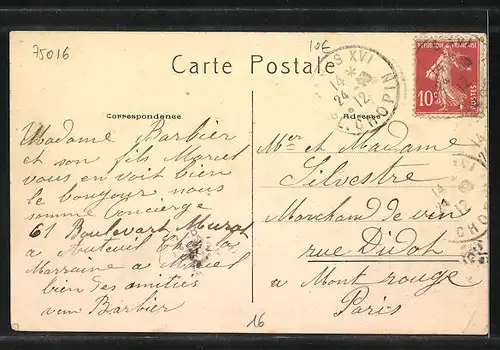 75016
10€
Carte Postale
RÉPUBLIQUE FRANÇAISE
10c
POSTES
PARIS XVI
14 *
24
12
R. CHOPIN
Correspondance
Adresse
Madame Barbier
et son fils Marcel
vous en voit bien
le bonjour nous
somme concierge
61 Boulevart Murat
a Auteuil chez la
Marraine a Marcel
bien des amitiés
vem Barbier
Mer et Madame
Silvestre
Marchand de vin
rue Didot
a Mont rouge
Paris
16